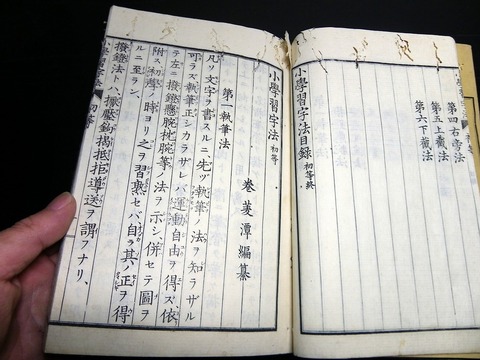 第四右旁法
第五上截法
第六下截法
小學習字法目錄 初等終
小學習字法 初等
卷菱潭編纂
第一執筆法
凡ソ文字ヲ書スルニ先ヅ執筆ノ法ヲ知ラザル
可ラズ執筆正シカラザレバ運動自由ヲ得ズ依
テ左ニ撥鐙懸腕枕腕等ノ法ヲ示シ、併セテ圖ヲ
附ス初學ノ時ヨリ之ヲ習熟セバ自ラ其ノ正ヲ得
ルニ至ラン、
撥鐙法トハ、擫壓鉤揭抵拒導送ヲ謂フナリ、
小學習字法 初等